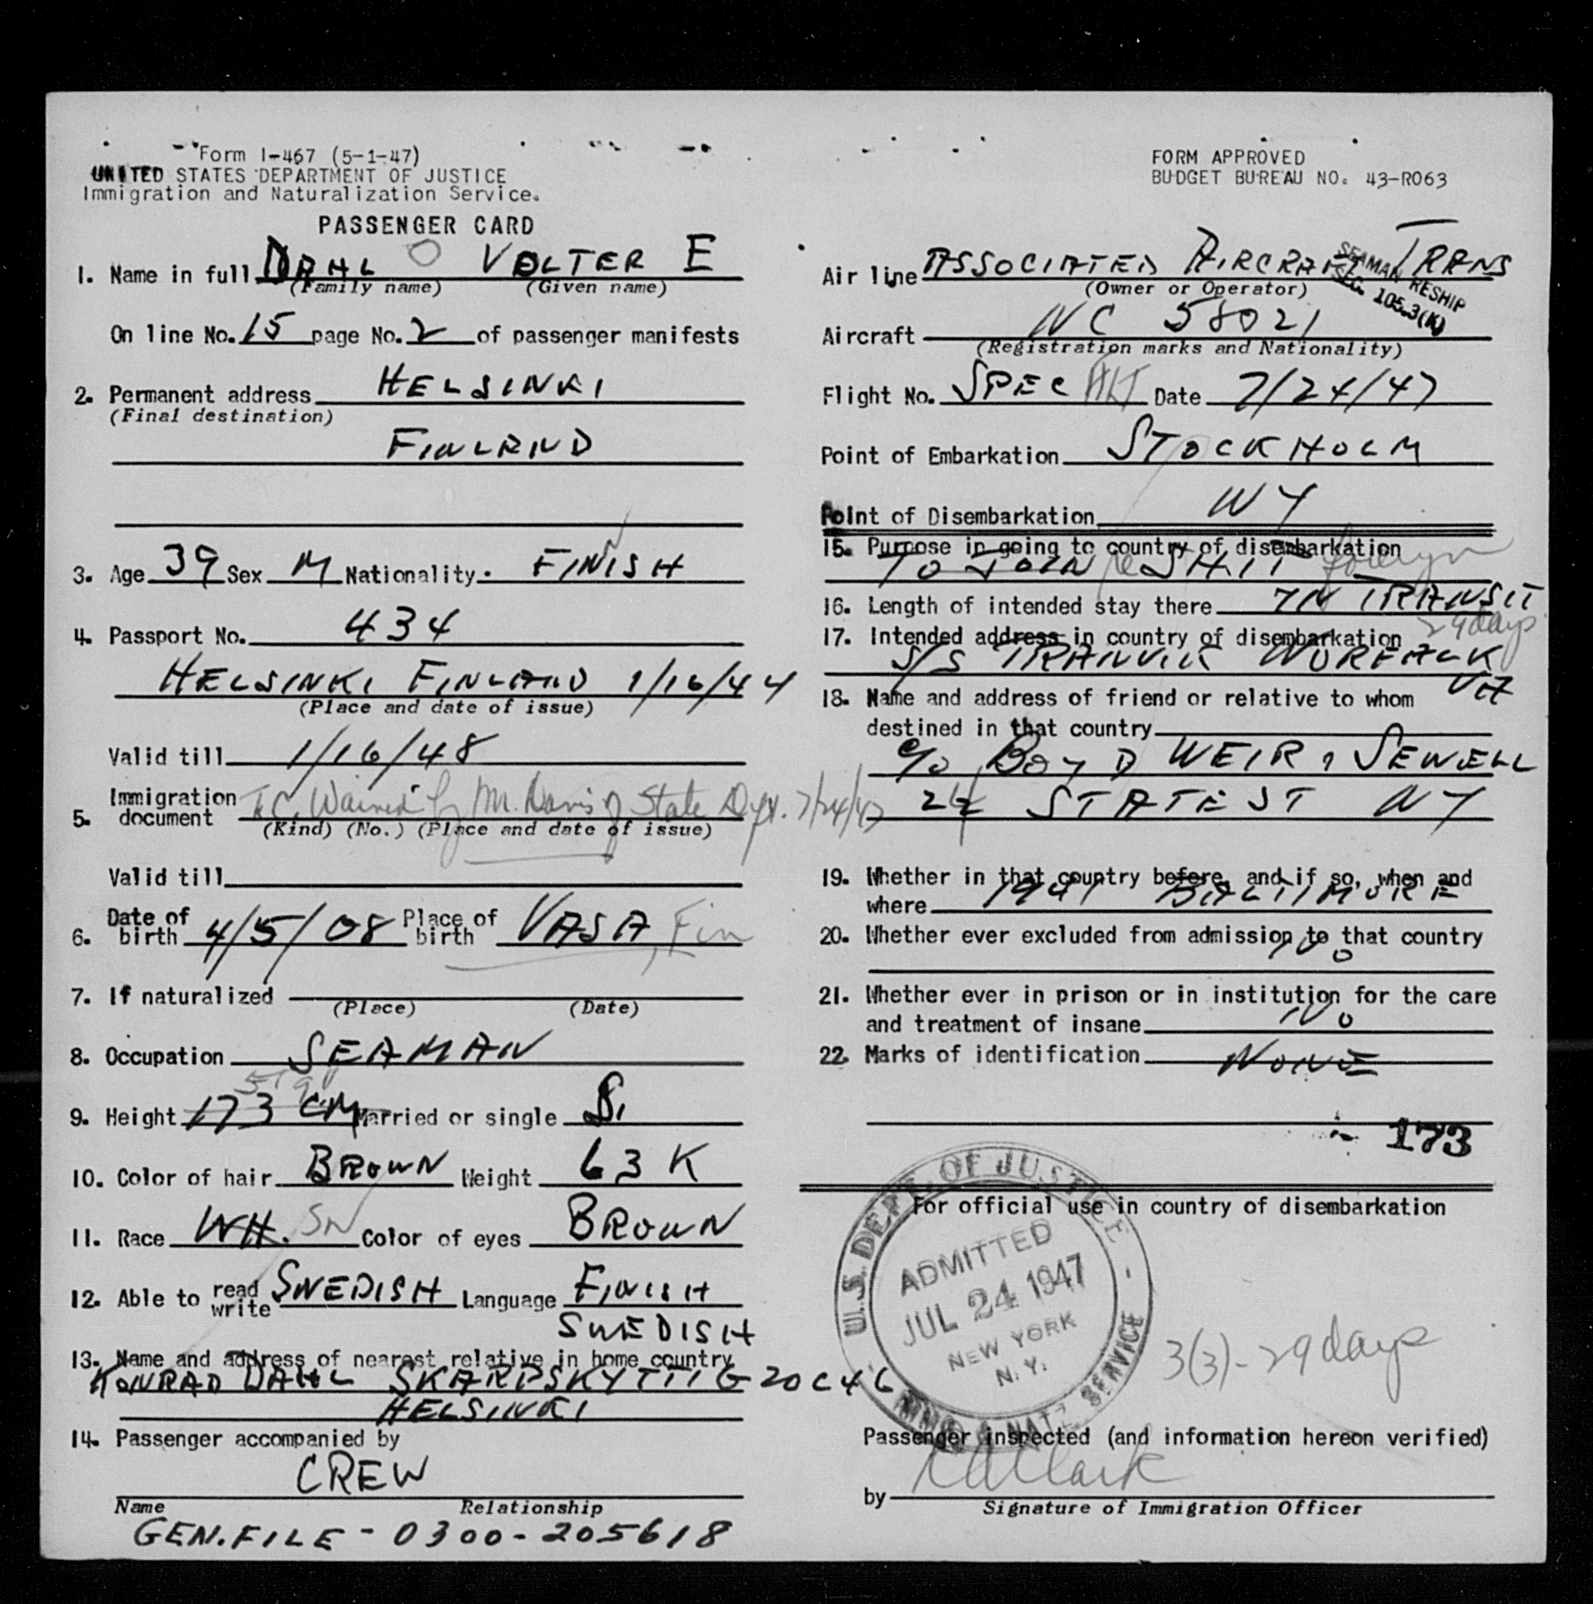 Form I-467 (5-1-47)
UNITED STATES DEPARTMENT OF JUSTICE
Immigration and Naturalization Service.
PASSENGER CARD
1. Name in full DAHL O VOLTER E
(Family name) (Given name)
On line No. 15 page No. 2 of passenger manifests
2. Permanent address HELSINKI
(Final destination)
FINLAND
3. Age 39 Sex M Nationality. FINISH
4. Passport No. 434
HELSINKI FINLAND 1/16/44
(Place and date of issue)
Valid till 1/16/48
5. Immigration document Waived by Mr. Davis of State Dept. 7/24/47
(Kind) (No.) (Place and date of issue)
Valid till
6. Date of birth 4/5/08 Place of birth VASA, Fin
7. If naturalized
(Place) (Date)
8. Occupation SEAMAN
9. Height 173 CM Married or single S.
10. Color of hair BROWN Weight 63 K
11. Race WH. Color of eyes BROWN
12. Able to read write SWEDISH Language FINISH
SWEDISH
13. Name and address of nearest relative in home country
KONRAD DAHL SKARPSKYTTIG 20 C 46
HELSINKI
14. Passenger accompanied by
CREW
Name Relationship
GEN.FILE - 0300-205618
FORM APPROVED
BUDGET BUREAU NO. 43-R063
Air line ASSOCIATED AIRCRAFT TRANS
(Owner or Operator)
SEAMAN RESHIP
SEC. 105.3(K)
Aircraft NC 58021
(Registration marks and Nationality)
Flight No. SPEC Date 7/24/47
Point of Embarkation STOCKHOLM
Point of Disembarkation NY
15. Purpose in going to country of disembarkation
TO JOIN SHIP foreign
16. Length of intended stay there IN TRANSIT
29 days
17. Intended address in country of disembarkation
S/S NORFALK
VA
18. Name and address of friend or relative to whom
destined in that country
c/o BOYD WEIR & SEWELL
24 STATE ST NY
19. Whether in that country before, and if so, when and
where 1941 BALTIMORE
20. Whether ever excluded from admission to that country
NO
21. Whether ever in prison or in institution for the care
and treatment of insane NO
22. Marks of identification NONE
173
For official use in country of disembarkation
U.S. DEPT. OF JUSTICE - IMMG & NATZ SERVICE
ADMITTED
JUL 24 1947
NEW YORK
N.Y.
3(3)-29 days
Passenger inspected (and information hereon verified)
by Clark
Signature of Immigration Officer